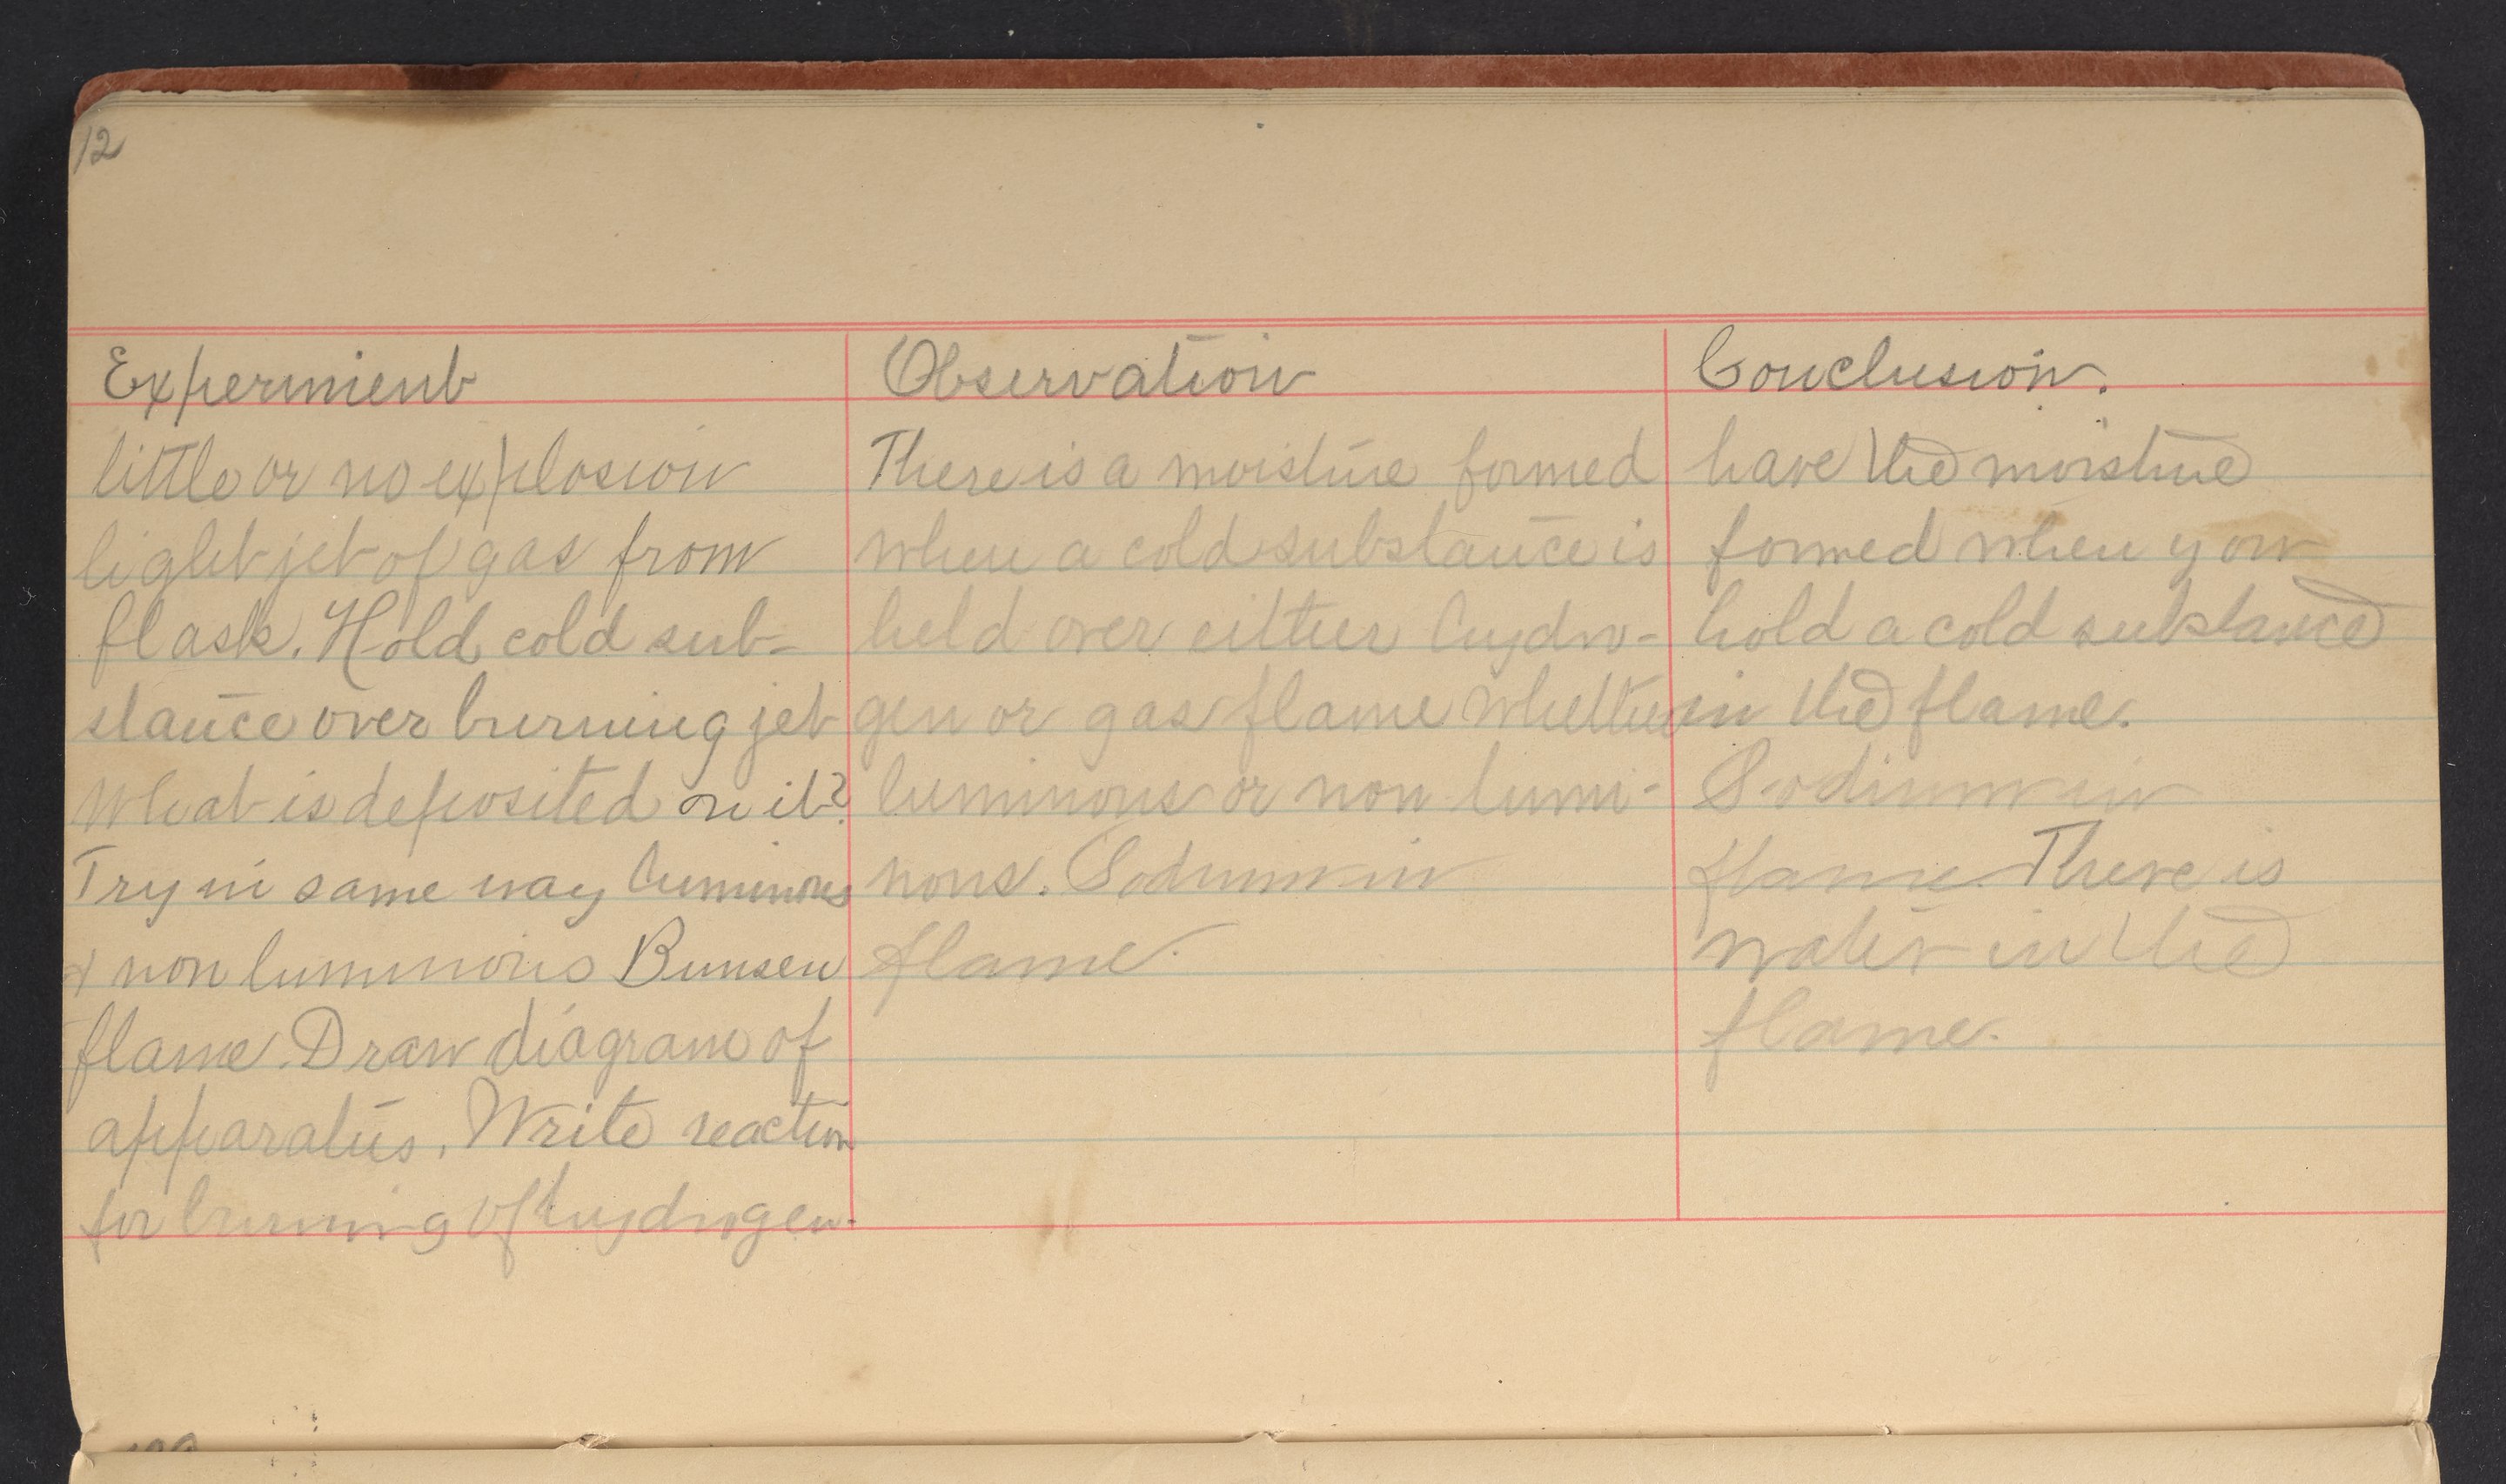 12
Experiment
little or no explosion
light jet of gas from
flask. Hold cold sub-
stance over burning jet
What is deposited on it?
Try in same way luminous
& non luminous Bunsen
flame. Draw diagram of
apparatus. Write reaction
for burning of hydrogen.
Observation
There is a moisture formed
when a cold substance is
held over either hydro-
gen or gas flame whether
luminous or non lumi-
nous. Sodium in
flame.
Conclusion.
have the moisture
formed when you
hold a cold substance
in the flame.
Sodium in
flame. There is
water in the
flame.